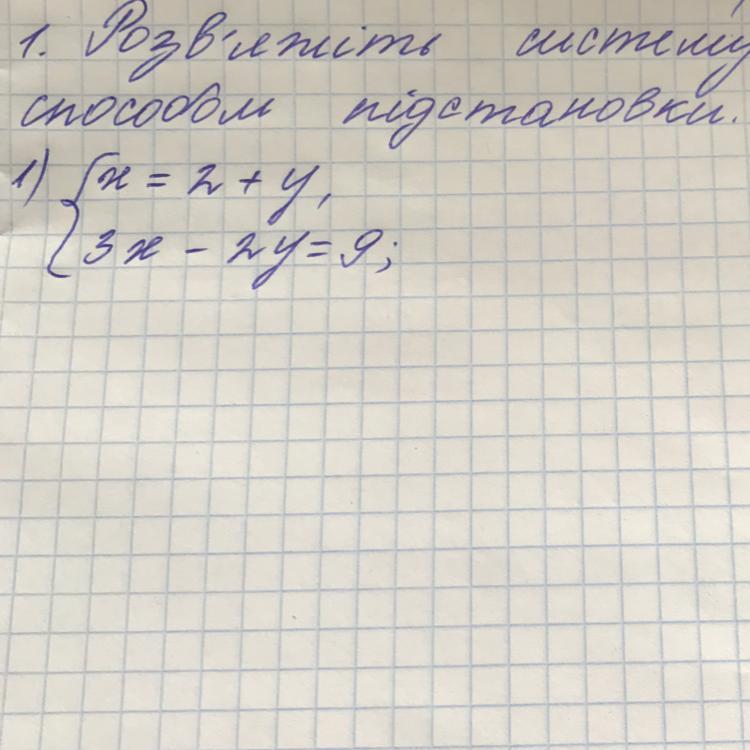 1. Розв'яжіть систему
способом підстановки.
1) { x = 2 + y,
3x - 2y = 9;